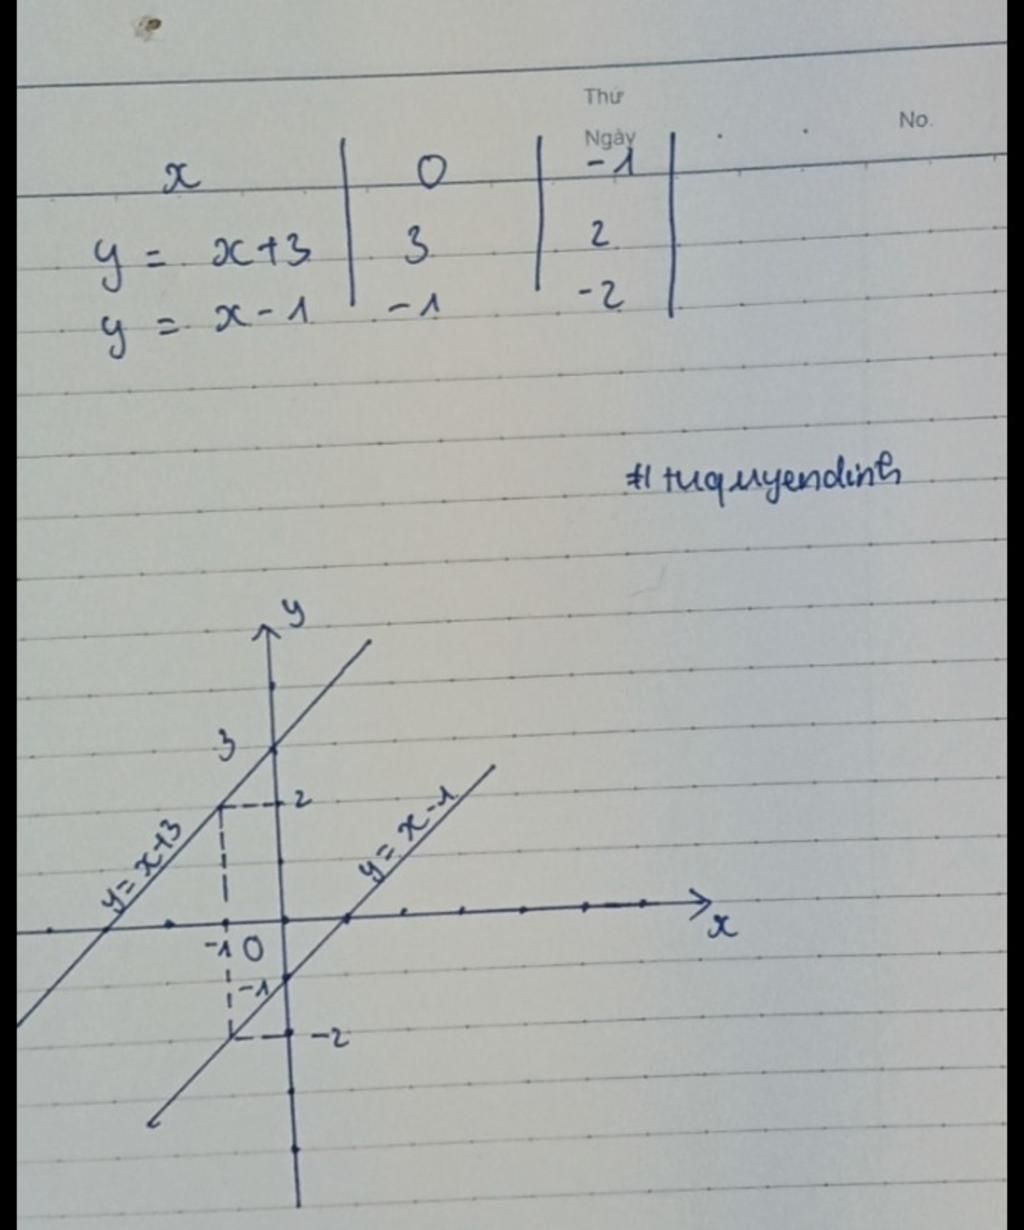 Thứ
Ngày
No.
x 0 -1
y = x+3 3 2
y = x-1 -1 -2
#tuquyendinh
y
3
2
y = x+3
y = x-1
x
-1 0
-1
-2